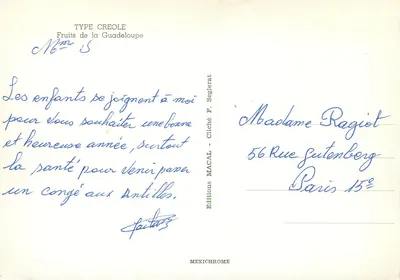 TYPE CREOLE
Fruits de la Guadeloupe
Les enfants se joignent à moi
pour vous souhaiter une bonne
et heureuse année, surtout
la santé pour venir passer
un congé aux Antilles.
Editions MACAL - Cliché F. Seglerat
Madame Ragiot
56 Rue Gutenberg
Paris 15e
MEXICHROME